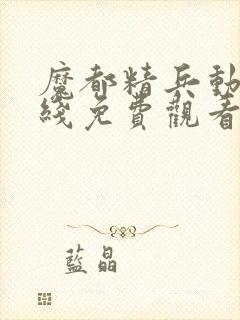 魔都精兵動
綫免費觀看
藍晶